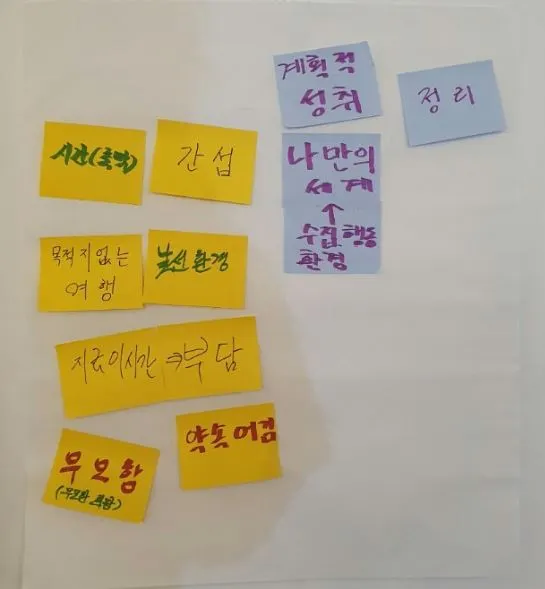 계획적
성취
정리
시간(촉박)
간섭
나만의
세계
↑
수집행동
환경
목적지없는
여행
낯선환경
지금이시간 ⇒부담
약속어김
무모함